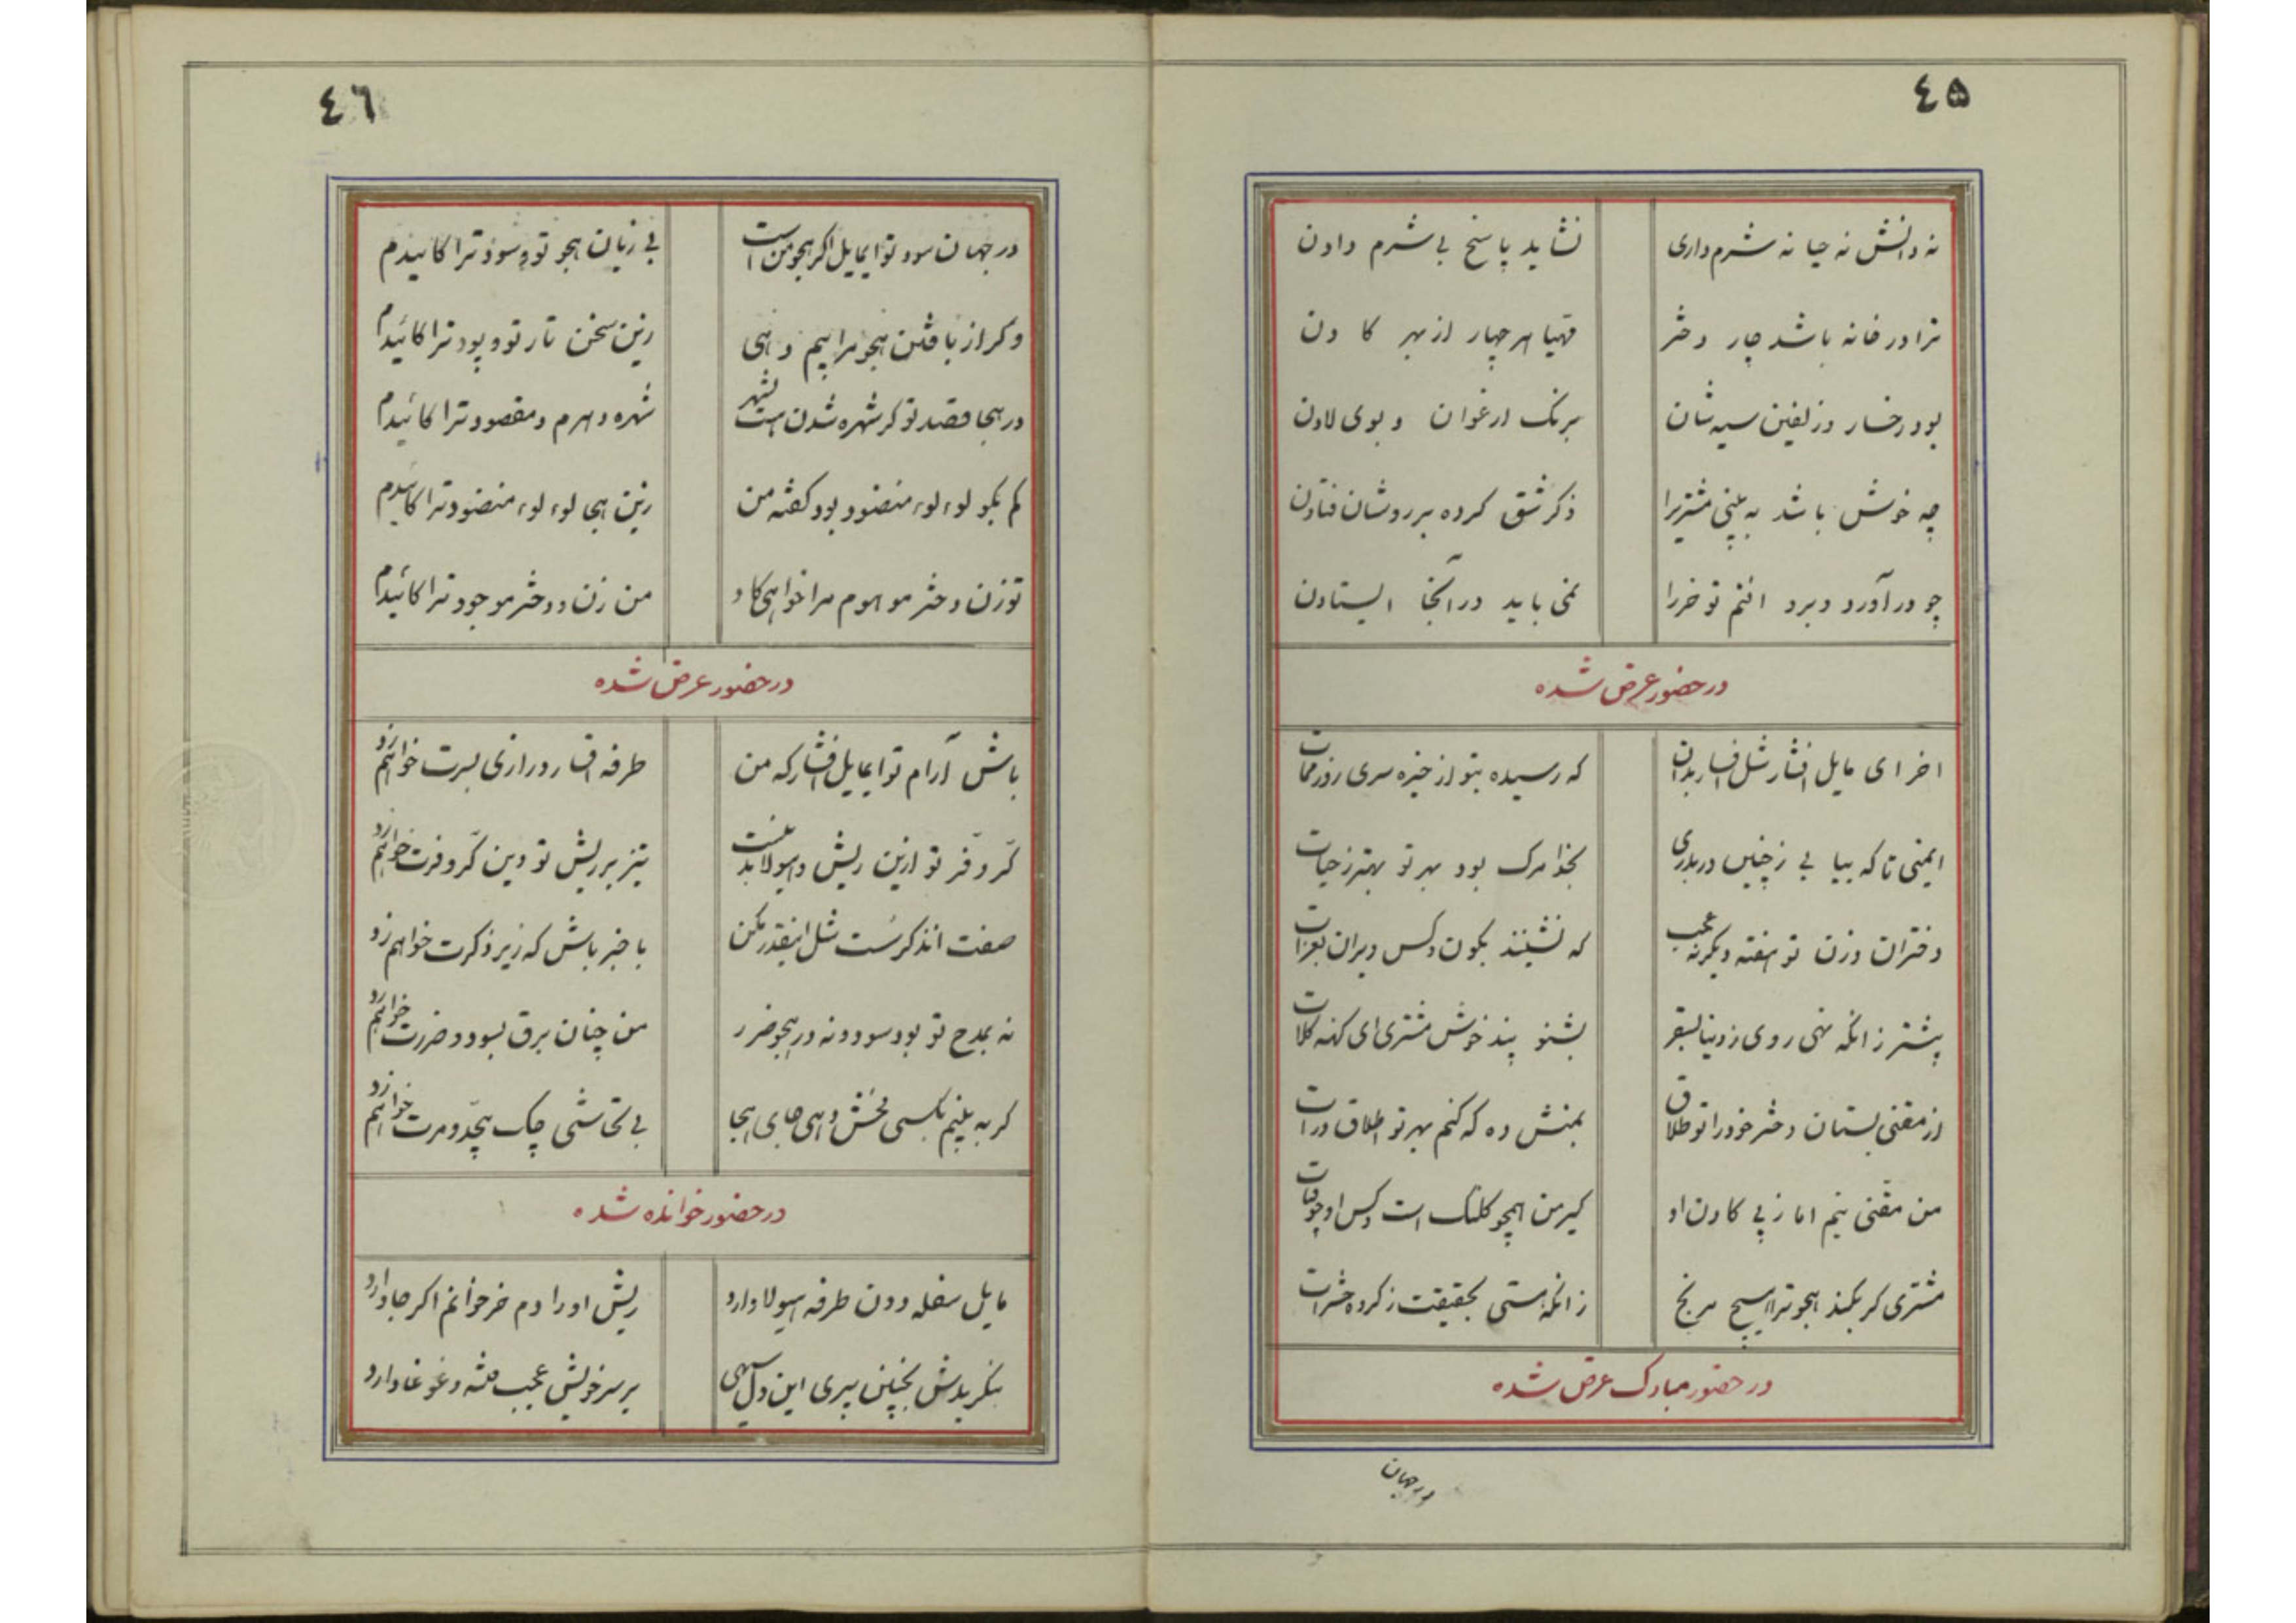 ٤۵
نه دانش نه حیا نه شرم داری نشاید پاسخ بی شرم دادن
ترا در خانه باشد چار دختر مهیا هر چهار از بهر کادن
بود رخسار و زلفین سیه شان برنک ارغوان و بوی لادن
چه خوش باشد به بینی مشتریرا ذکر شق کرده بر روشان فتادن
چو در آورد و برد انتم تو خررا نمی باید در آنجا ایستادن
در حضور عرض شده
اخر ای مایل افشار شل افسار بدان که رسیده بتو از خیره سری روز ممات
ایمنی تا که بیابی ز چنین دربدری بخدا مرک بود بهر تو بهتر ز حیات
دختران و زن تو خفته و یکرنه عجب که نشینند بکون و کس ویران بعزات
پیشتر زانکه نهی روی ز دنیا بسقر بشنو پند خوش مشتری ای کهنه کلات
از مقنی بستان دختر خود را تو طلاق بمنش ده که کنم بهر تو اطلاق درات
من مقنی نیم اما ز پی کادن او کیر من همچو کلنک است و کس او چو قنات
مشتری کر بکند هجو ترا هیچ مرنج زانکه هستی بحقیقت ز کرده حشرات
در حضور مبارک عرض شده
در جهان
٤٦
در جهان سود تو ایمایل اکر هجو من است بی زیان هجو تو و سود ترا کائیدم
وکر از بافتن هجو مرا بیم دهی زین سخن تار تو و پود ترا کائیدم
در هجا قصد تو کر شهره شدن هست بشهر شهره و هرم و مقصود ترا کائیدم
کم بکو لوء لوء منضود بود کفته من زین هجی لوء لوء منضود ترا کائیدم
تو زن و دختر موهوم مرا خواهی کاد من زن و دختر موجود ترا کائیدم
در حضور عرض شده
باش آرام تو ایمایل افشار که من طرفه افسار درازی بسرت خواهم زد
کرّ و فرّ تو ازین ریش و هیولا بد نیست تیز بر ریش تو و این کرّ و فرت خواهم زد
صفت اندکرست شل اینقدر مکن با خبر باش که زیر ذکرت خواهم زد
نه بمدح تو بود سود و نه در هجو ضرر من چنان برق بسود و ضررت خواهم زد
کر به بینم بکسی فحش دهی جای هجا بی تحاشی چک بیحدّ و مرت خواهم زد
در حضور خوانده شده
مایل سفله دون طرفه هیولا دارد ریش او را دم خر خوانم اکر جا دارد
بنکریدش بچنین پیری این دل سیهی بر سر خویش عجب فتنه و غوغا دارد